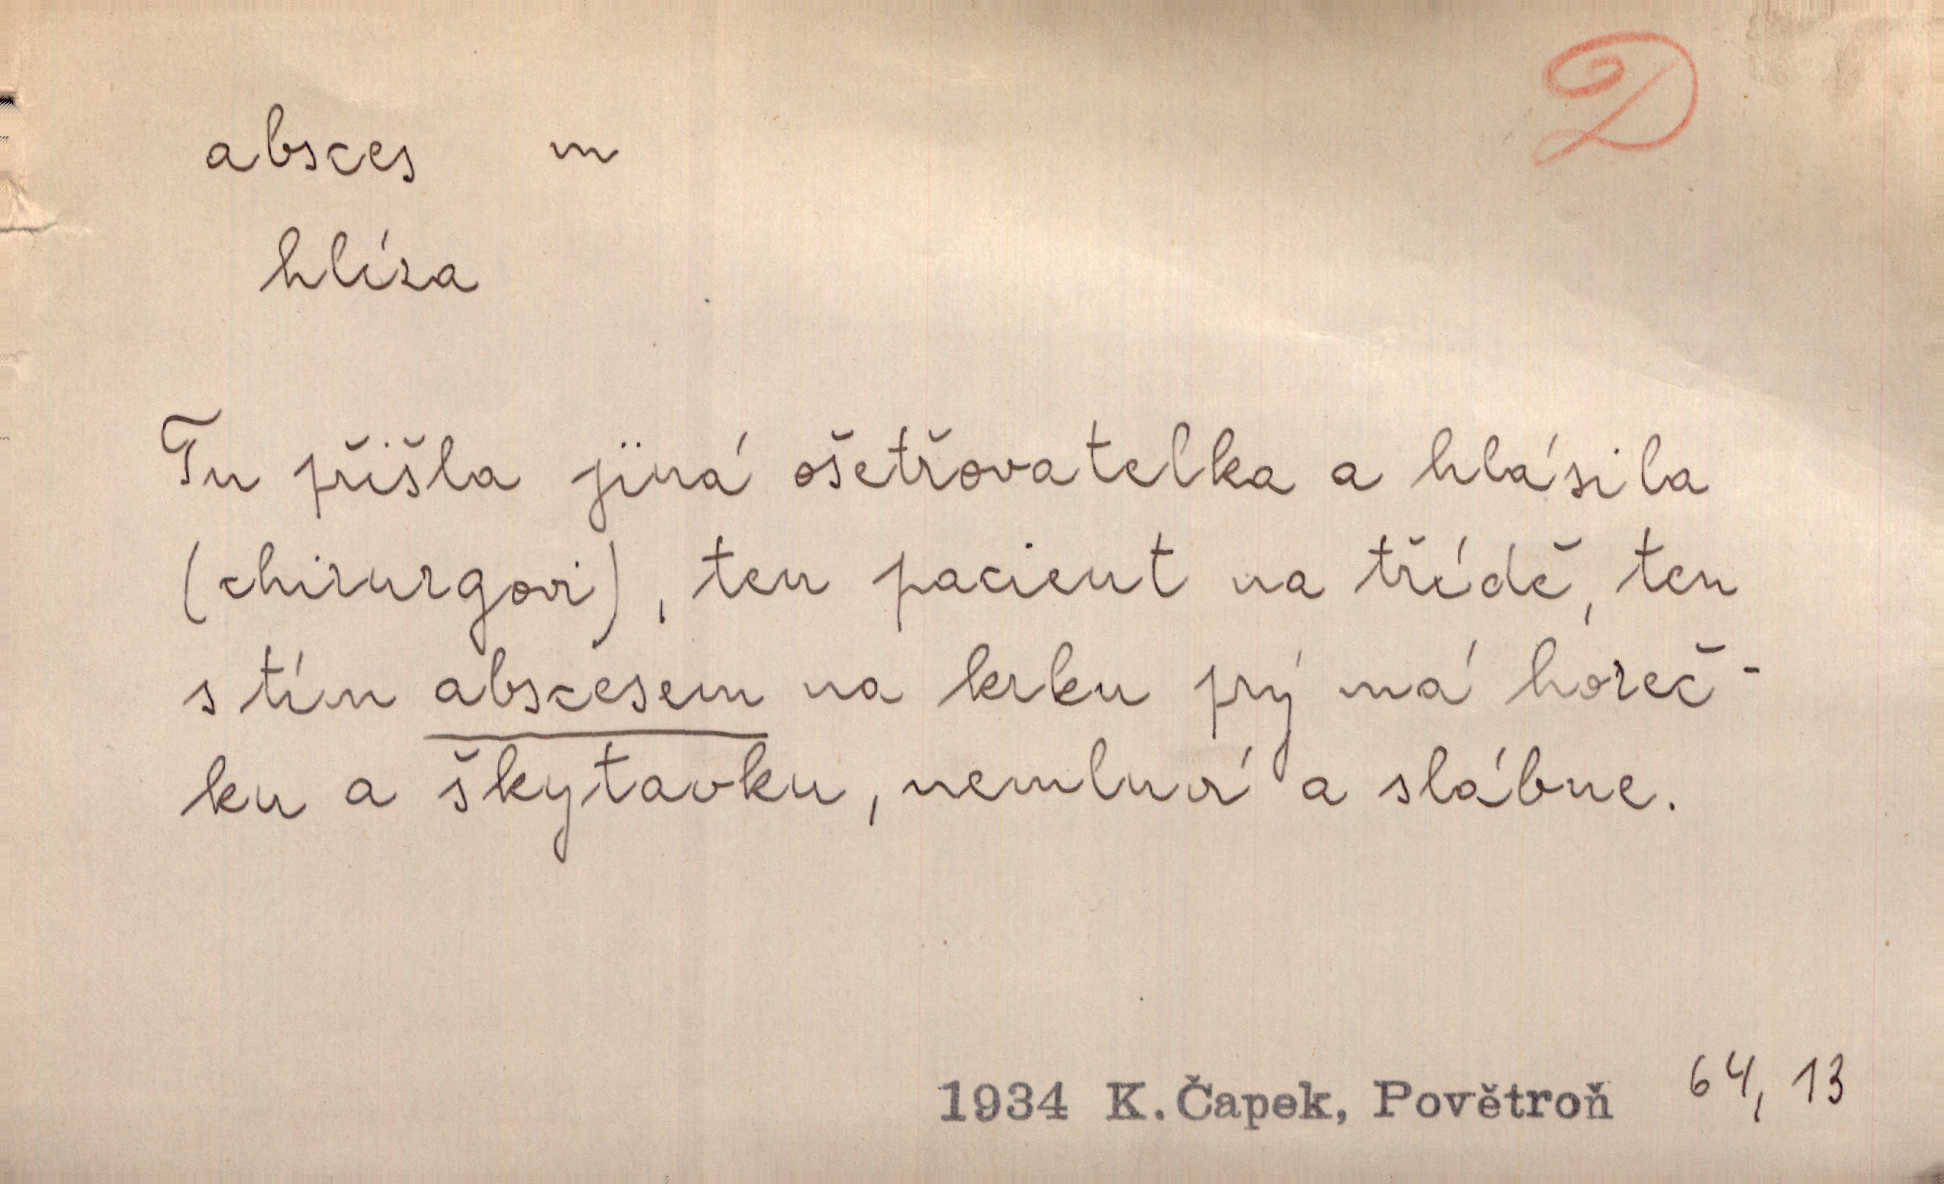 D
absces m
hlíza
Tu přišla jiná ošetřovatelka a hlásila
(chirurgovi), ten pacient na třídě, ten
s tím abscesem na krku prý má horeč-
ku a škytavku, nemluví a slábne.
1934 K. Čapek, Povětroň 64, 13